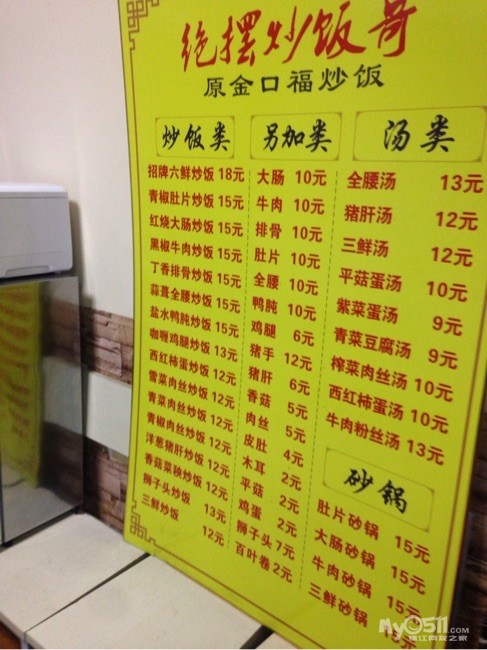 绝摆炒饭哥
原金口福炒饭
炒饭类
招牌六鲜炒饭 18元
青椒肚片炒饭 15元
红烧大肠炒饭 15元
黑椒牛肉炒饭 15元
丁香排骨炒饭 15元
蒜薹全腰炒饭 15元
盐水鸭肫炒饭 15元
咖喱鸡腿炒饭 13元
西红柿蛋炒饭 12元
雪菜肉丝炒饭 12元
青菜肉丝炒饭 12元
青椒肉丝炒饭 12元
洋葱猪肝炒饭 12元
香菇菜秧炒饭 12元
狮子头炒饭 13元
三鲜炒饭 12元
另加类
大肠 10元
牛肉 10元
排骨 10元
肚片 10元
全腰 10元
鸭肫 10元
鸡腿 6元
猪手 12元
猪肝 6元
香菇 5元
肉丝 5元
皮肚 4元
木耳 2元
平菇 2元
鸡蛋 2元
狮子头 7元
百叶卷 2元
汤类
全腰汤 13元
猪肝汤 12元
三鲜汤 12元
平菇蛋汤 10元
紫菜蛋汤 9元
青菜豆腐汤 9元
榨菜肉丝汤 10元
西红柿蛋汤 10元
牛肉粉丝汤 13元
砂锅
肚片砂锅 15元
大肠砂锅 15元
牛肉砂锅 15元
三鲜砂锅 15元
my0511.com
镇江网友之家